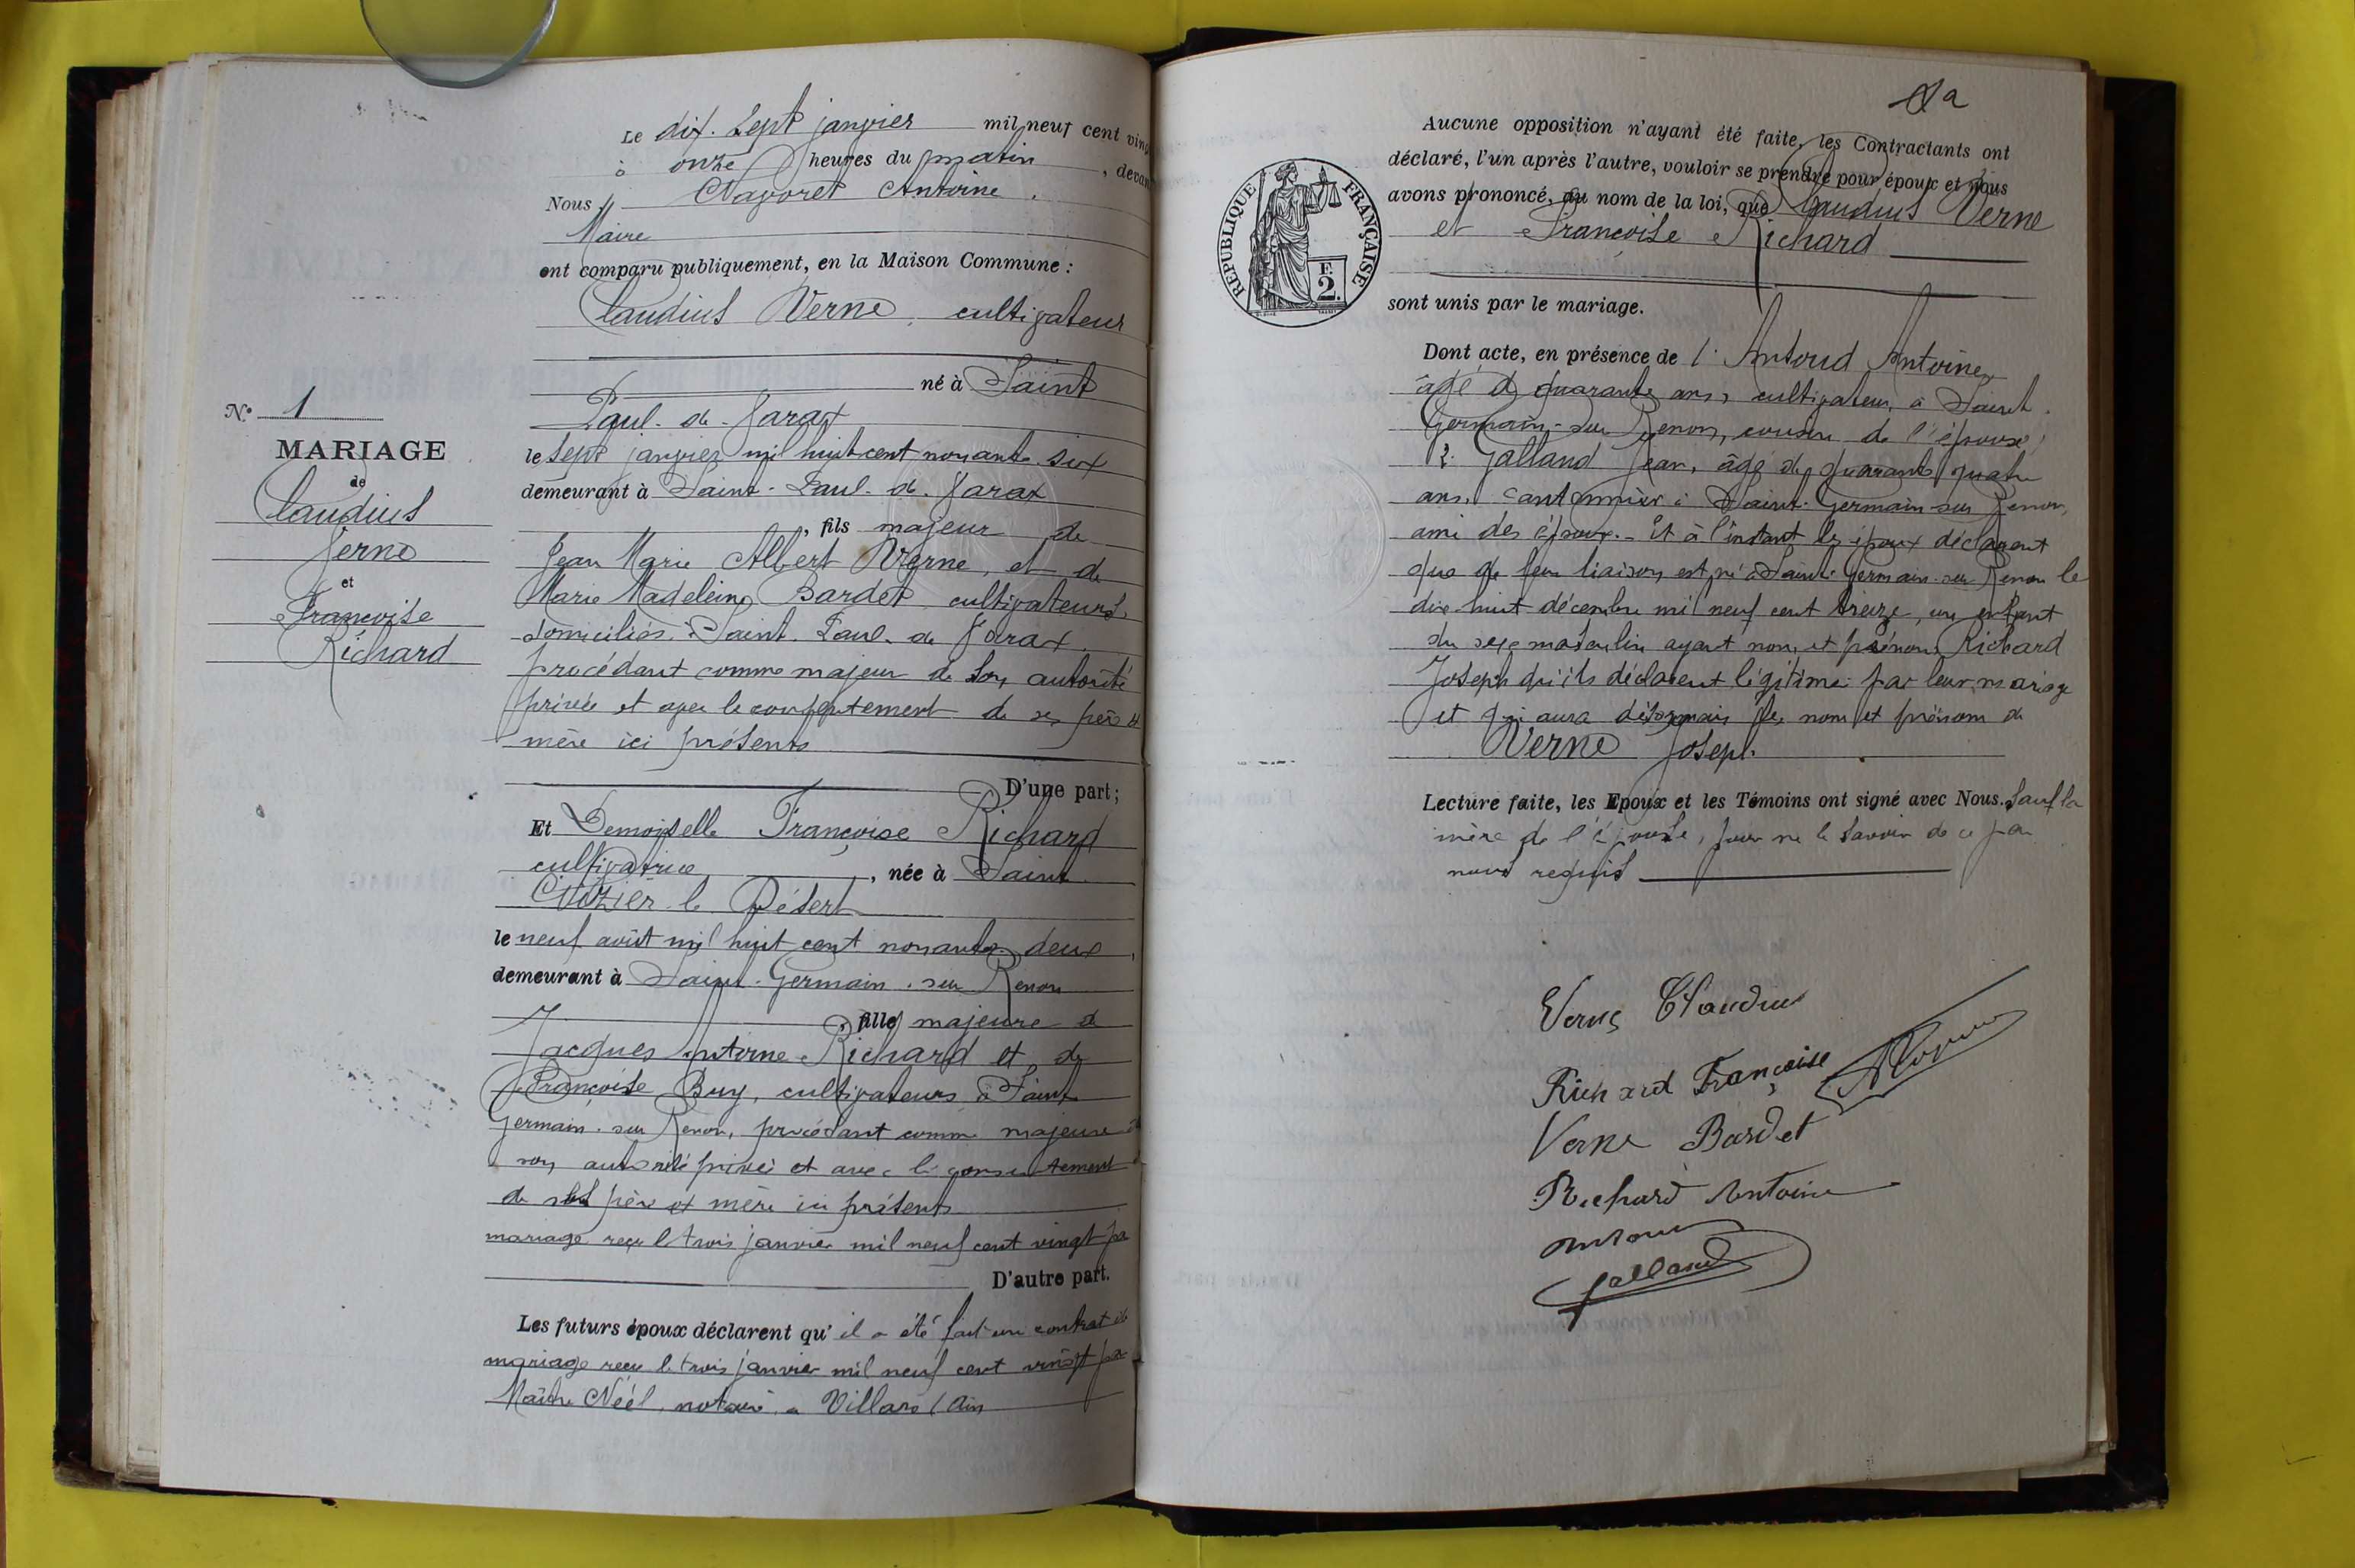 Le dix-sept janvier mil neuf cent vingt
à onze heures du matin, devant
Nous, Antoine.
Maire
ont comparu publiquement, en la Maison Commune :
Claudius Verne, cultivateur
né à Saint
Paul-de-Varax
le sept janvier mil huit cent nonante six
demeurant à Saint-Paul-de-Varax
, fils majeur de
Jean Marie Albert Verne, et de
Marie Madeleine Bardet cultivateurs
domiciliés à Saint-Paul-de-Varax
procédant comme majeur de son autorité
privée et avec le consentement de ses père et
mère ici présents
D'une part;
Et Demoiselle Françoise Richard
cultivatrice, née à Saint
Nizier le Désert
le neuf août mil huit cent nonante deux,
demeurant à Saint-Germain-sur Renon
, fille majeure de
Jacques Antoine Richard et de
Françoise Buy, cultivateurs à Saint
Germain-sur Renon, procédant comme majeure de
son autorité privée et avec le consentement
de ses père et mère ici présents
mariage reçu le trois janvier mil neuf cent vingt par
D'autre part.
Les futurs époux déclarent qu'il a été fait un contrat de
mariage reçu le trois janvier mil neuf cent vingt par
Maître Néel, notaire à Villars (Ain
N° 1
MARIAGE
de
Claudius
Verne
et
Françoise
Richard
Aucune opposition n'ayant été faite, les Contractants ont
déclaré, l'un après l'autre, vouloir se prendre pour époux et nous
avons prononcé, au nom de la loi, que Claudius Verne
et Françoise Richard
RÉPUBLIQUE FRANÇAISE
E
2.
sont unis par le mariage.
Dont acte, en présence de 1° Antoine
âgé de quarante ans, cultivateur, à Saint
Germain-sur Renon, cousin de l'épouse,
2° Galland Jean, âgé de quarante quatre
ans, cantonnier à Saint-Germain-sur Renon,
ami des époux.- Et à l'instant les époux déclarent
que de leur liaison est né à Saint-Germain-sur Renon le
dix huit décembre mil neuf cent treize, un enfant
du sexe masculin ayant nom et prénom Richard
Joseph qu'ils déclarent légitimé par leur mariage
et qui aura désormais les nom et prénom de
Verne Joseph.
Lecture faite, les Epoux et les Témoins ont signé avec Nous. Sauf la
mère de l'épouse, pour ne le savoir de ce par
nous requis
Verne Claudius
Richard Françoise
Verne Bardet
Richard Antoine
Galland